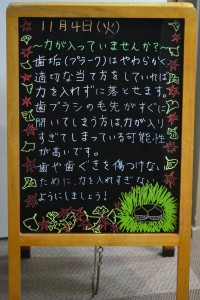 11月4日(火)
～力が入っていませんか？～
歯垢(プラーク)はやわらかく
適切な当て方をしていれば
力を入れずに落とせます。
歯ブラシの毛先がすぐに
開いてしまう方は力が入り
すぎてしまっている可能性
が高いです。
歯や歯ぐきを傷つけない
ために、力を入れすぎない
ようにしましょう！